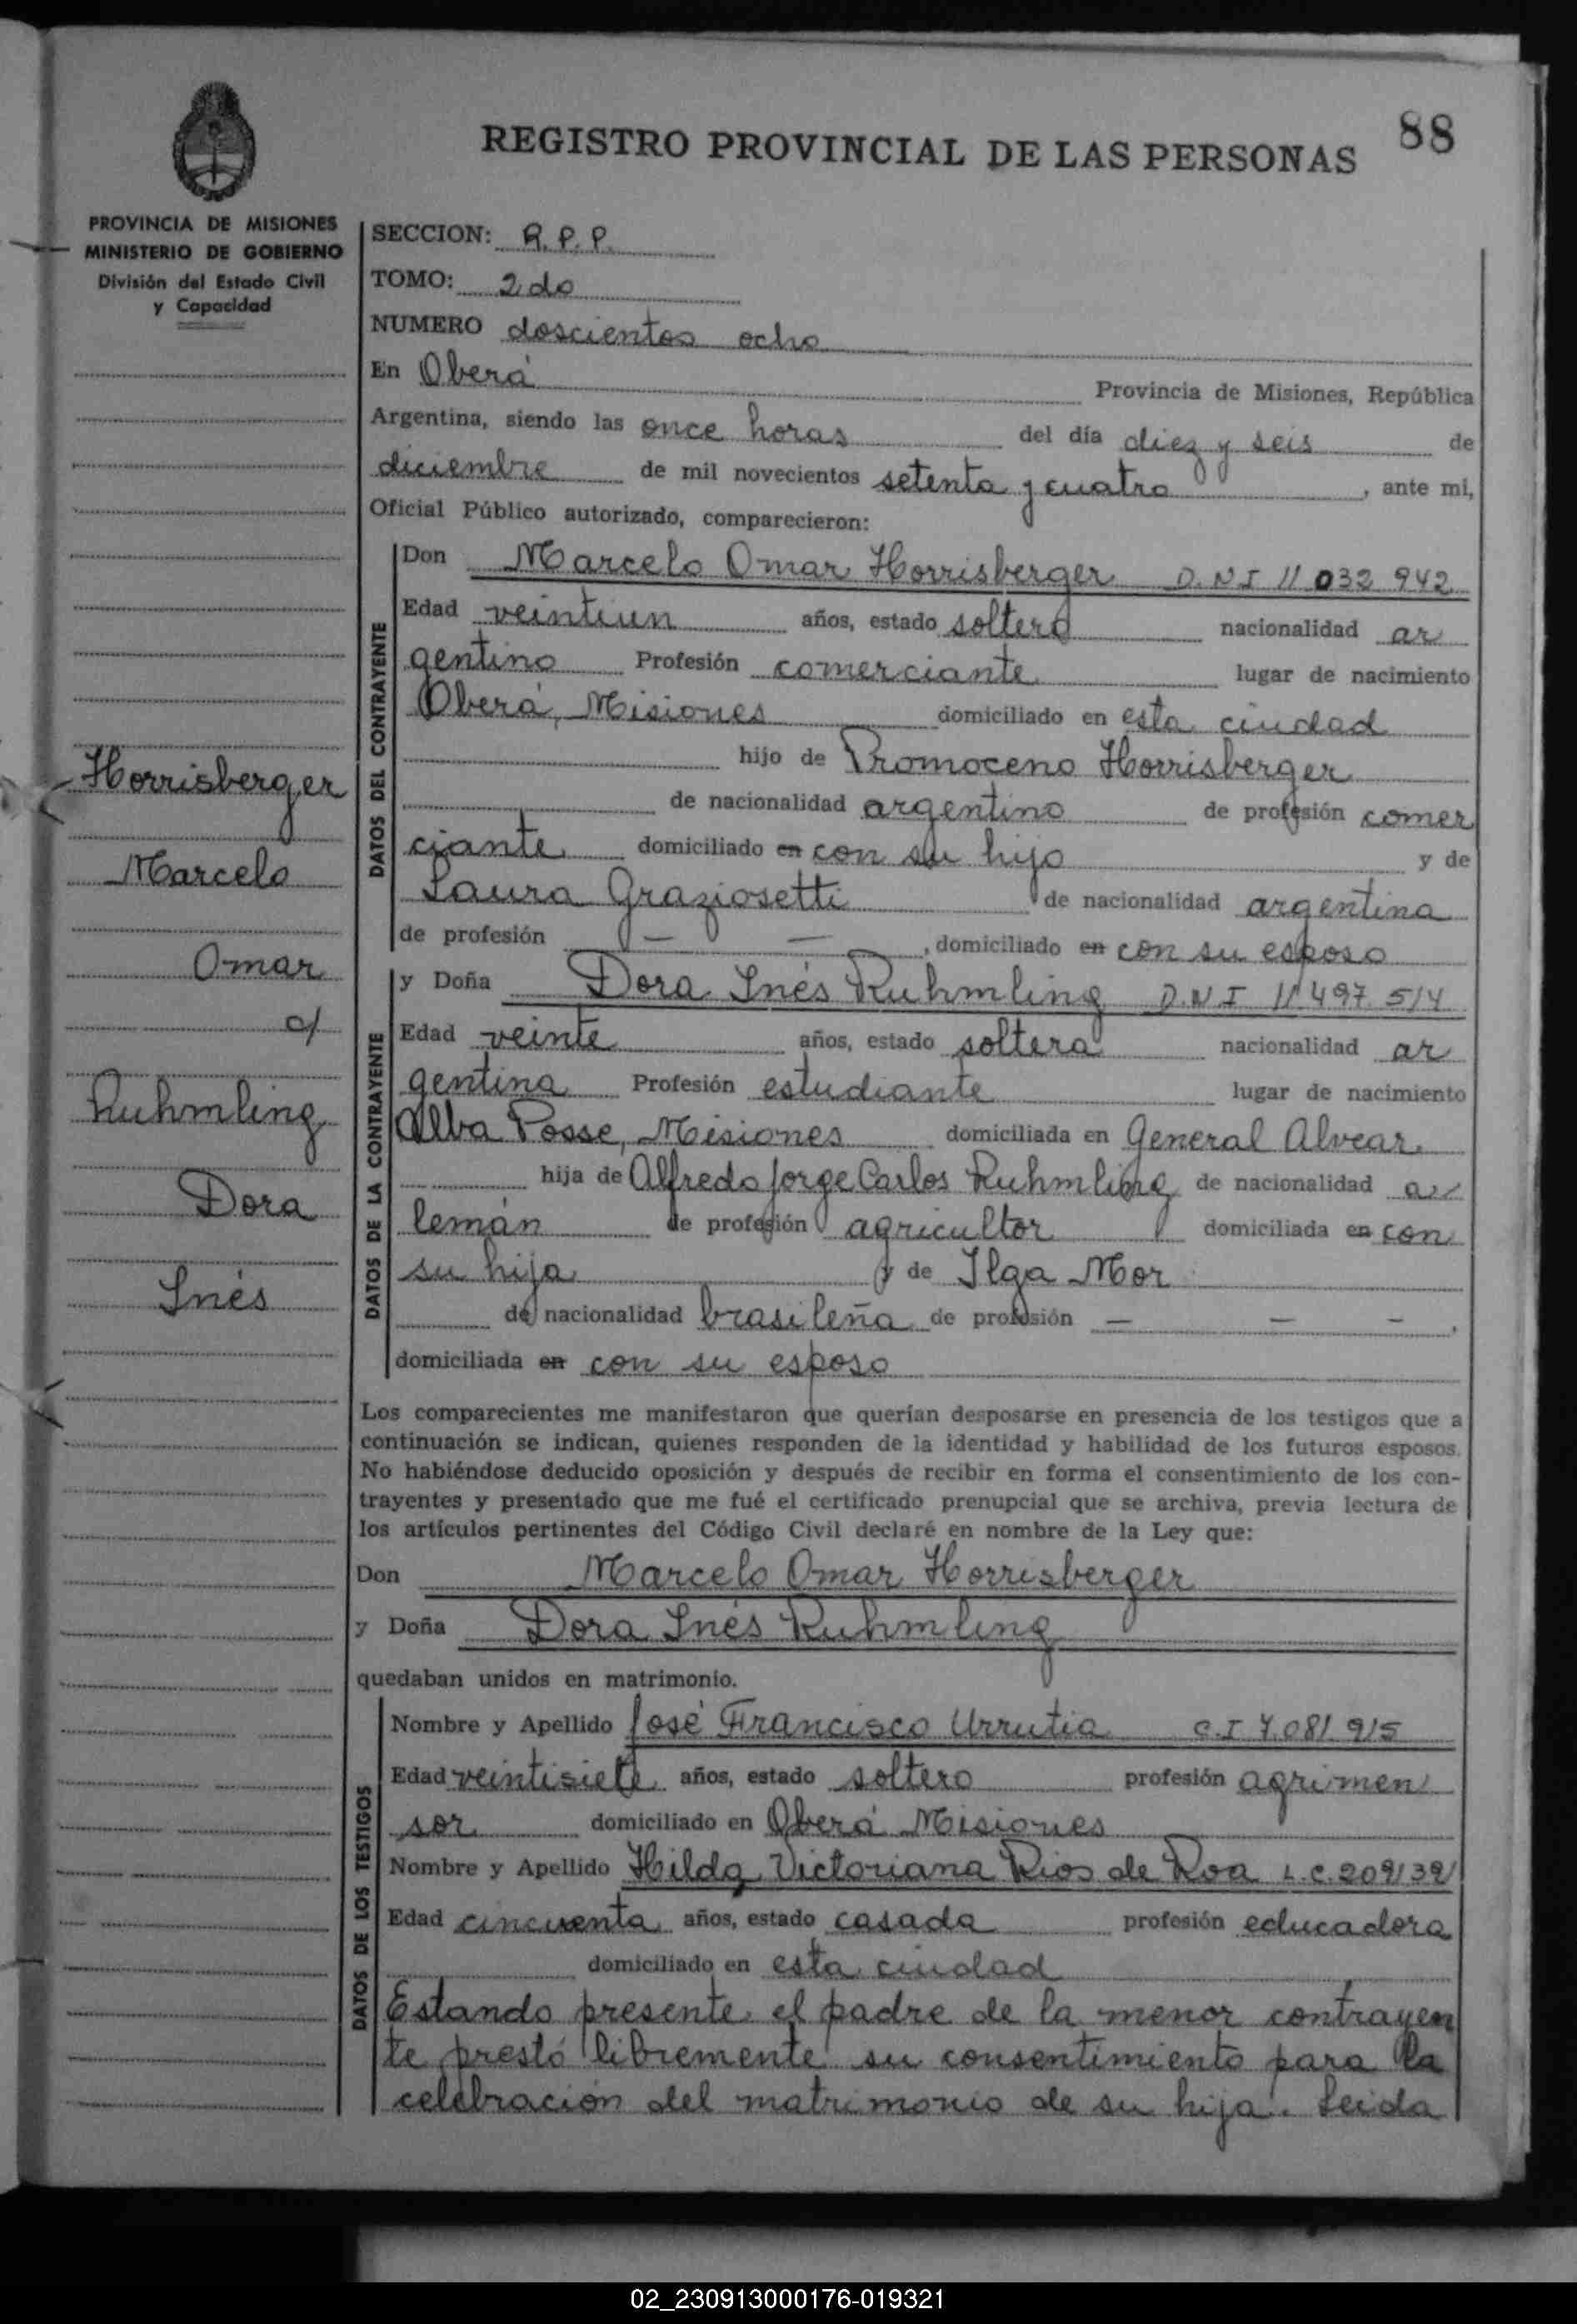 88
REGISTRO PROVINCIAL DE LAS PERSONAS
PROVINCIA DE MISIONES
MINISTERIO DE GOBIERNO
División del Estado Civil
y Capacidad
SECCION: R.P.P.
TOMO: 2do
NUMERO doscientos ocho
En Oberá Provincia de Misiones, República
Argentina, siendo las once horas del día diez y seis de
diciembre de mil novecientos setenta y cuatro, ante mi,
Oficial Público autorizado, comparecieron:
DATOS DEL CONTRAYENTE
Don Marcelo Omar Horrisberger D.N.I 11 032 942
Edad veintiun años, estado soltero nacionalidad ar
gentino Profesión comerciante lugar de nacimiento
Oberá, Misiones domiciliado en esta ciudad
hijo de Promoceno Horrisberger
de nacionalidad argentino de profesión comer
ciante domiciliado en con su hijo y de
Laura Graziosetti de nacionalidad argentina
de profesión — —, domiciliado en con su esposo
DATOS DE LA CONTRAYENTE
y Doña Dora Inés Ruhmling D.N.I 11 497 514
Edad veinte años, estado soltera nacionalidad ar
gentina Profesión estudiante lugar de nacimiento
Alba Posse, Misiones domiciliada en General Alvear
hija de Alfredo Jorge Carlos Ruhmling de nacionalidad a
lemán de profesión agricultor domiciliada en con
su hija y de Ilga Mor
de nacionalidad brasileña de profesión — — —.
domiciliada en con su esposo
Horrisberger
Marcelo
Omar
c/
Ruhmling
Dora
Inés
Los comparecientes me manifestaron que querían desposarse en presencia de los testigos que a
continuación se indican, quienes responden de la identidad y habilidad de los futuros esposos.
No habiéndose deducido oposición y después de recibir en forma el consentimiento de los con-
trayentes y presentado que me fué el certificado prenupcial que se archiva, previa lectura de
los artículos pertinentes del Código Civil declaré en nombre de la Ley que:
Don Marcelo Omar Horrisberger
y Doña Dora Inés Ruhmling
quedaban unidos en matrimonio.
DATOS DE LOS TESTIGOS
Nombre y Apellido José Francisco Urrutia C.I 7.081 915
Edad veintisiete años, estado soltero profesión agrimen
sor domiciliado en Oberá Misiones
Nombre y Apellido Hilda Victoriana Rios de Roa L.C. 209132
Edad cincuenta años, estado casada profesión educadora
domiciliado en esta ciudad
Estando presente el padre de la menor contrayen
te prestó libremente su consentimiento para la
celebración del matrimonio de su hija. Leida
02_230913000176-019321